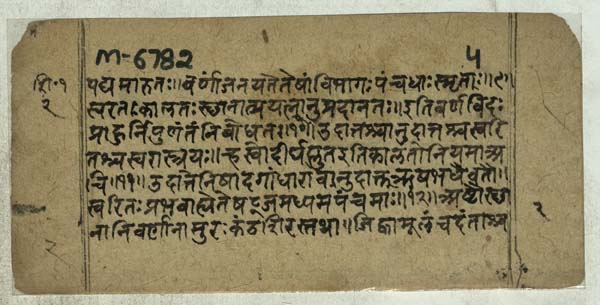 M-6782 ५
शि॰१
२
पद्यमारुतः॥ वर्णाञ्जनयते तेषां विभागः पंचधाः स्मृताः॥९॥
स्वरतः कालतः स्थानात्प्रयत्नानुप्रदानतः॥ इतिवर्णविदः
प्राहुर्निपुणंतंनिबोधतः॥१०॥ उदात्तश्चानुदात्तश्चस्वरि
तश्चस्वरास्त्रयः॥ ह्रस्वोदीर्घप्लुतइतिकालतोनियमाअ
चि॥११॥ उदात्तेनिषादगांधारावानुदात्तऋषभधैवतो॥
स्वरितःप्रभवाह्येतेषड्जमध्यमपंचमाः॥१२॥ अष्टौस्था
नानिवर्णानामुरःकंठशिरस्तथा॥ जिह्वामूलंचदंताश्च
२